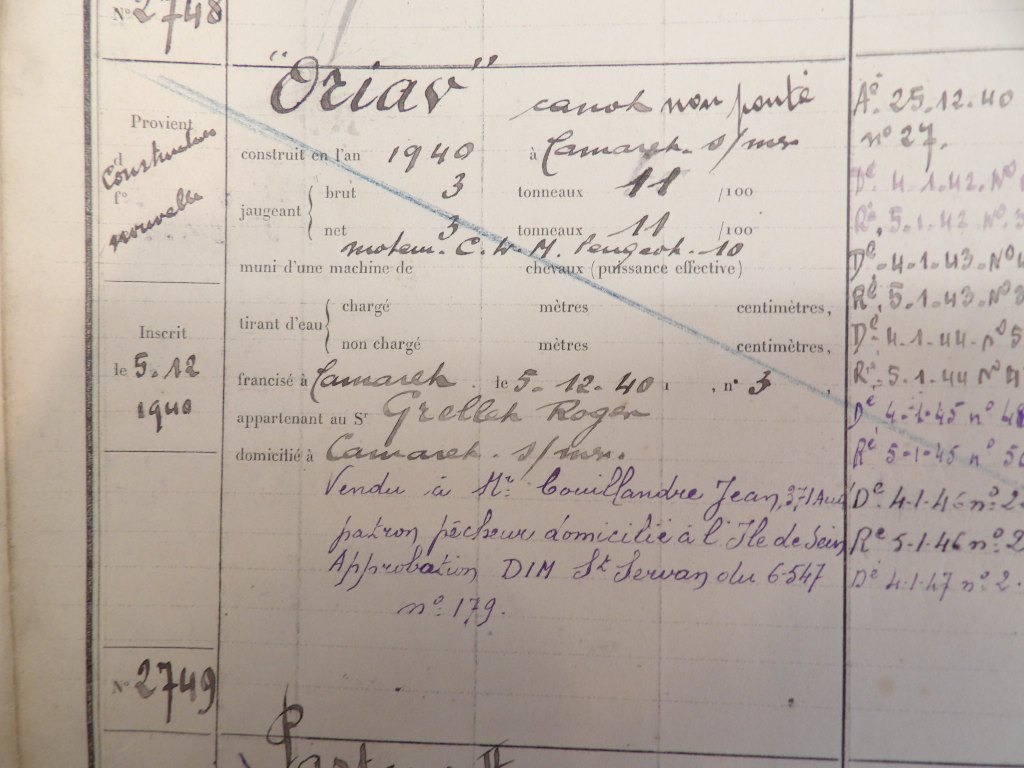 N° 2748
"Oriav" canot non ponté
Provient
d
Construction
f°
nouvelle
construit en l'an 1940 à Camaret. s/mer
jaugeant
brut 3 tonneaux 11 /100
net 3 tonneaux 11 /100
moteur C. L. M. Peugeot. 10
muni d'une machine de chevaux (puissance effective)
tirant d'eau
chargé mètres centimètres,
non chargé mètres centimètres,
Inscrit
le 5.12
1940
francisé à Camaret. le 5.12.40 , n° 3 ,
appartenant au Sr Grellet Roger
domicilié à Camaret. s/mer.
Vendu à Mr. Couillandre Jean, 371 Aud
patron pêcheur domicilié à l'Ile de Sein
Approbation DIM St Servan du 6-5-47
n° 179.
Aé. 25.12.40
n° 27.
Dé. 4.1.42. N°
Ré. 5.1.42 N° 3
Dé. 4.1.43. N°
Ré. 5.1.43. N°
Dé 4.1.44. n° 5
Ré. 5.1.44 N° 4
Dé 4-1-45 n° 48
Ré 5-1-45 n° 50
Dé 4.1.46 n° 2
Ré 5.1.46 n° 2
Dé 4.1.47 n° 2.
N° 2749